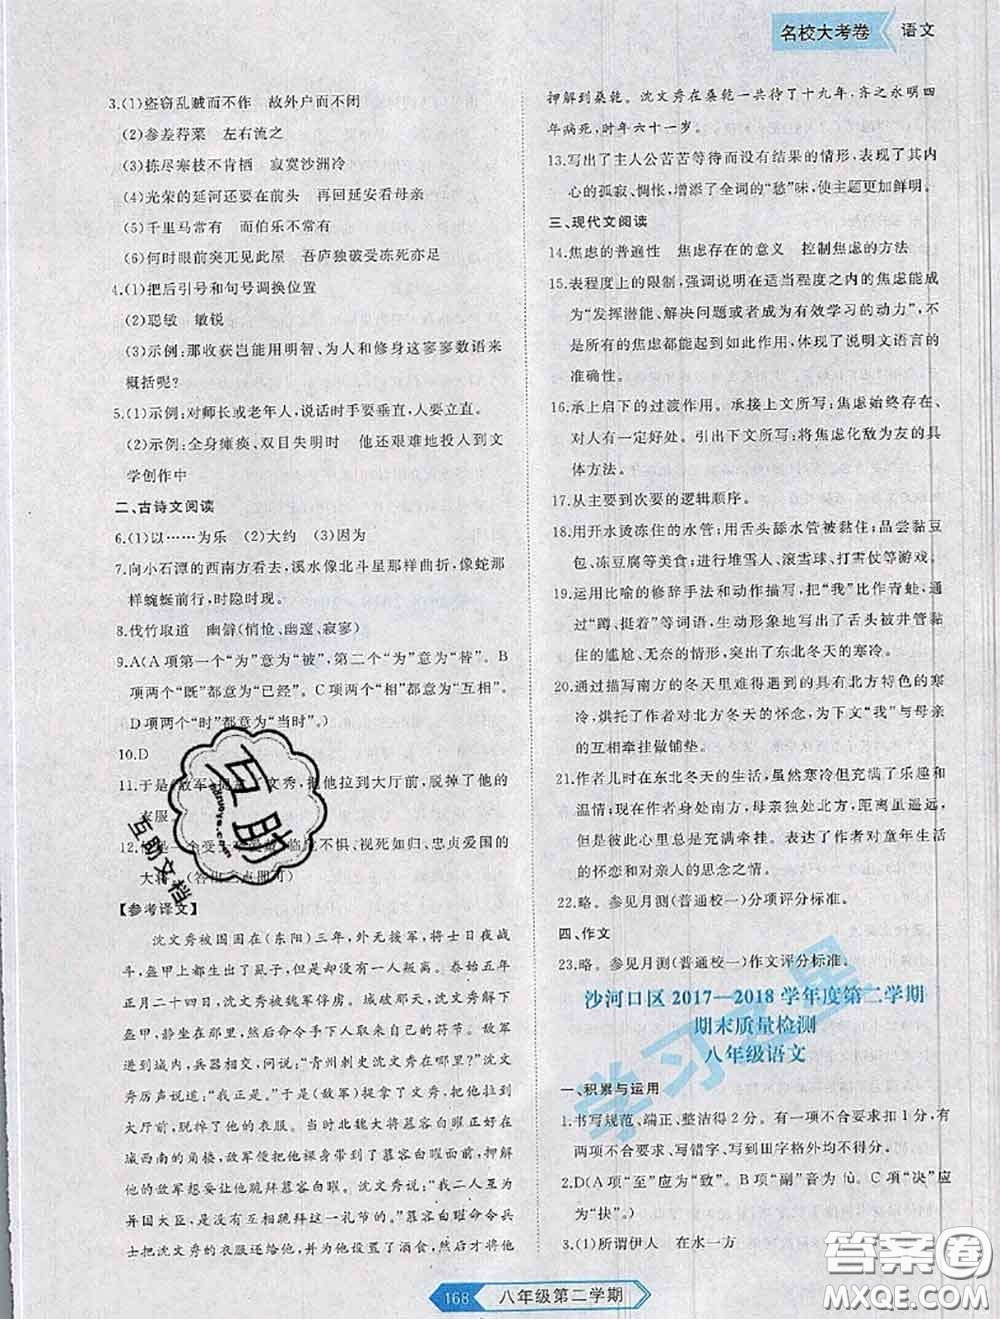 名校大考卷 语文
3.(1)盗窃乱贼而不作 故外户而不闭
(2)参差荇菜 左右流之
(3)拣尽寒枝不肯栖 寂寞沙洲冷
(4)光荣的延河还要在前头 再回延安看母亲
(5)千里马常有 而伯乐不常有
(6)何时眼前突兀见此屋 吾庐独破受冻死亦足
4.(1)把后引号和句号调换位置
(2)聪敏 敏锐
(3)示例:那收获岂能用明智、为人和修身这寥寥数语来
概括呢?
5.(1)示例:对师长或老年人,说话时手要垂直,人要立直。
(2)示例:全身瘫痪、双目失明时 他还艰难地投入到文
学创作中
二、古诗文阅读
6.(1)以……为乐 (2)大约 (3)因为
7.向小石潭的西南方看去,溪水像北斗星那样曲折,像蛇那
样蜿蜒前行,时隐时现。
8.伐竹取道 幽僻(悄怆、幽邃、寂寥)
9.A(A项第一个“为”意为“被”,第二个“为”意为“替”。B
项两个“既”都意为“已经”。C项两个“相”都意为“互相”。
D项两个“时”都意为“当时”。)
10.D
11.于是(敌军)捉了文秀,把他拉到大厅前,脱掉了他的
衣服。
12.他是一个受士卒爱戴、临危不惧、视死如归、忠贞爱国的
大将。(答出三点即可)
【参考译文】
沈文秀被围困在(东阳)三年,外无援军,将士日夜战
斗,盔甲中都生出了虱子,但仍没有人叛离。泰始五年
正月二十四日,沈文秀被敌人俘虏。城池失守的当天,
沈文秀解下盔甲,穿着宽松的衣服,命令左右随从拿着
符节,静坐在屋内。乱兵突然来到,
沈文秀厉声说道:“我就是!”(敌军)捉了文秀,把他拉到
大厅前,脱掉了他的衣服。当时北魏大将慕容白曜在
城西南的角楼,敌军绑着沈文秀到慕容白曜面前,围城
的敌军想要让他跪拜慕容白曜,沈文秀说:“我二人互为
异国大臣,是没有相互跪拜这一礼节的。”慕容白曜命令兵
士把沈文秀的衣服还给他,并为他设置了酒食,然后将他
押解到桑乾。沈文秀在桑乾一共待了十九年,齐之永明四
年病死,时年六十一岁。
13.写出了主人公苦苦等待而没有结果的情形,表现了其内
心的孤寂、惆怅,增添了全词的“愁”味,使主题更加鲜明。
三、现代文阅读
14.焦虑的普遍性 焦虑存在的意义 控制焦虑的方法
15.表程度上的限制,强调说明在适当程度之内的焦虑能成
为“发挥潜能、解决问题或者成为有效学习的动力”,不
是所有的焦虑都能起到如此作用,体现了说明文语言的
准确性。
16.承上启下的过渡作用。承接上文所写:焦虑始终存在、
对人有一定好处。引出下文所写:将焦虑化敌为友的具
体方法。
17.从主要到次要的逻辑顺序。
18.用开水烫冻住的水管;用舌头舔水管被黏住;品尝黏豆
包、冻豆腐等美食;进行堆雪人、滚雪球、打雪仗等游戏。
19.运用比喻的修辞手法和动作描写,把“我”比作青蛙,
通过“蹲、挺着”等词语,生动形象地写出了舌头被井管黏
住的尴尬、无奈的情形,突出了东北冬天的寒冷。
20.通过描写南方的冬天里难得遇到的具有北方特色的寒
冷,烘托了作者对北方冬天的怀念,为下文“我”与母亲
的互相牵挂做铺垫。
21.作者儿时在东北冬天的生活,虽然寒冷但充满了乐趣和
温情;如今,或者作者身处南方,母亲独处北方,距离虽遥远,
但是彼此心里总是充满牵挂。表达了作者对童年生活
的怀恋和对亲人的思念之情。
22.略。参见月测(普通校一)分项评分标准。
四、作文
23.略。参见月测(普通校一)作文评分标准。
沙河口区2017—2018学年度第二学期
期末质量检测
八年级语文
一、积累与运用
1.书写规范、端正、整洁得2分。有一项不合要求扣1分,有
两项不合要求、字迹潦草或写到田字格外均不得分。
2.D(A项“至”应为“致”。B项“副”音为fù。C项“决”应
为“抉”。)
3.(1)所谓伊人 在水一方
168 八年级第二学期
互助
互助文档
学习
答案圈
MXQE.COM